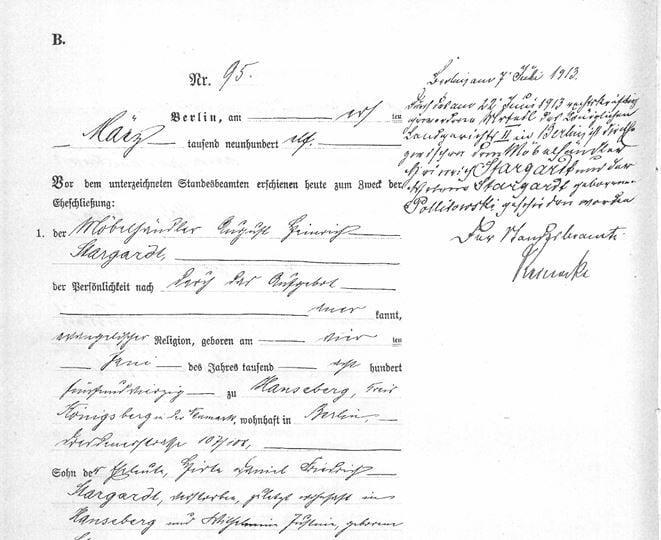 B.
Nr. 95.
Berlin, am ersten
März tausend neunhundert elf.
Vor dem unterzeichneten Standesbeamten erschienen heute zum Zweck der
Eheschließung:
1. der Möbelhändler August Heinrich
Stargardt,
der Persönlichkeit nach durch das Aufgebot
kannt,
evangelischer Religion, geboren am vierten
Juni des Jahres tausend acht hundert
fünfundvierzig zu Hanseberg, Kreis
Königsberg in der Neumark, wohnhaft in Berlin,
Dresdenerstraße 107/108,
Sohn der Eheleute, Hirte Daniel Friedrich
Stargardt, verstorben, zuletzt wohnhaft in
Hanseberg und Wilhelmine Justine, geborene
Berlin am 7. Juli 1913.
Durch das am 22. Juni 1913 rechtskräftig
gewordene Urteil des Königlichen
Landgerichts II in Berlin ist die Ehe
zwischen dem Möbelhändler
Heinrich Stargardt und der
Stargardt geborenen
Pollitowski geschieden worden
Der Standesbeamte.